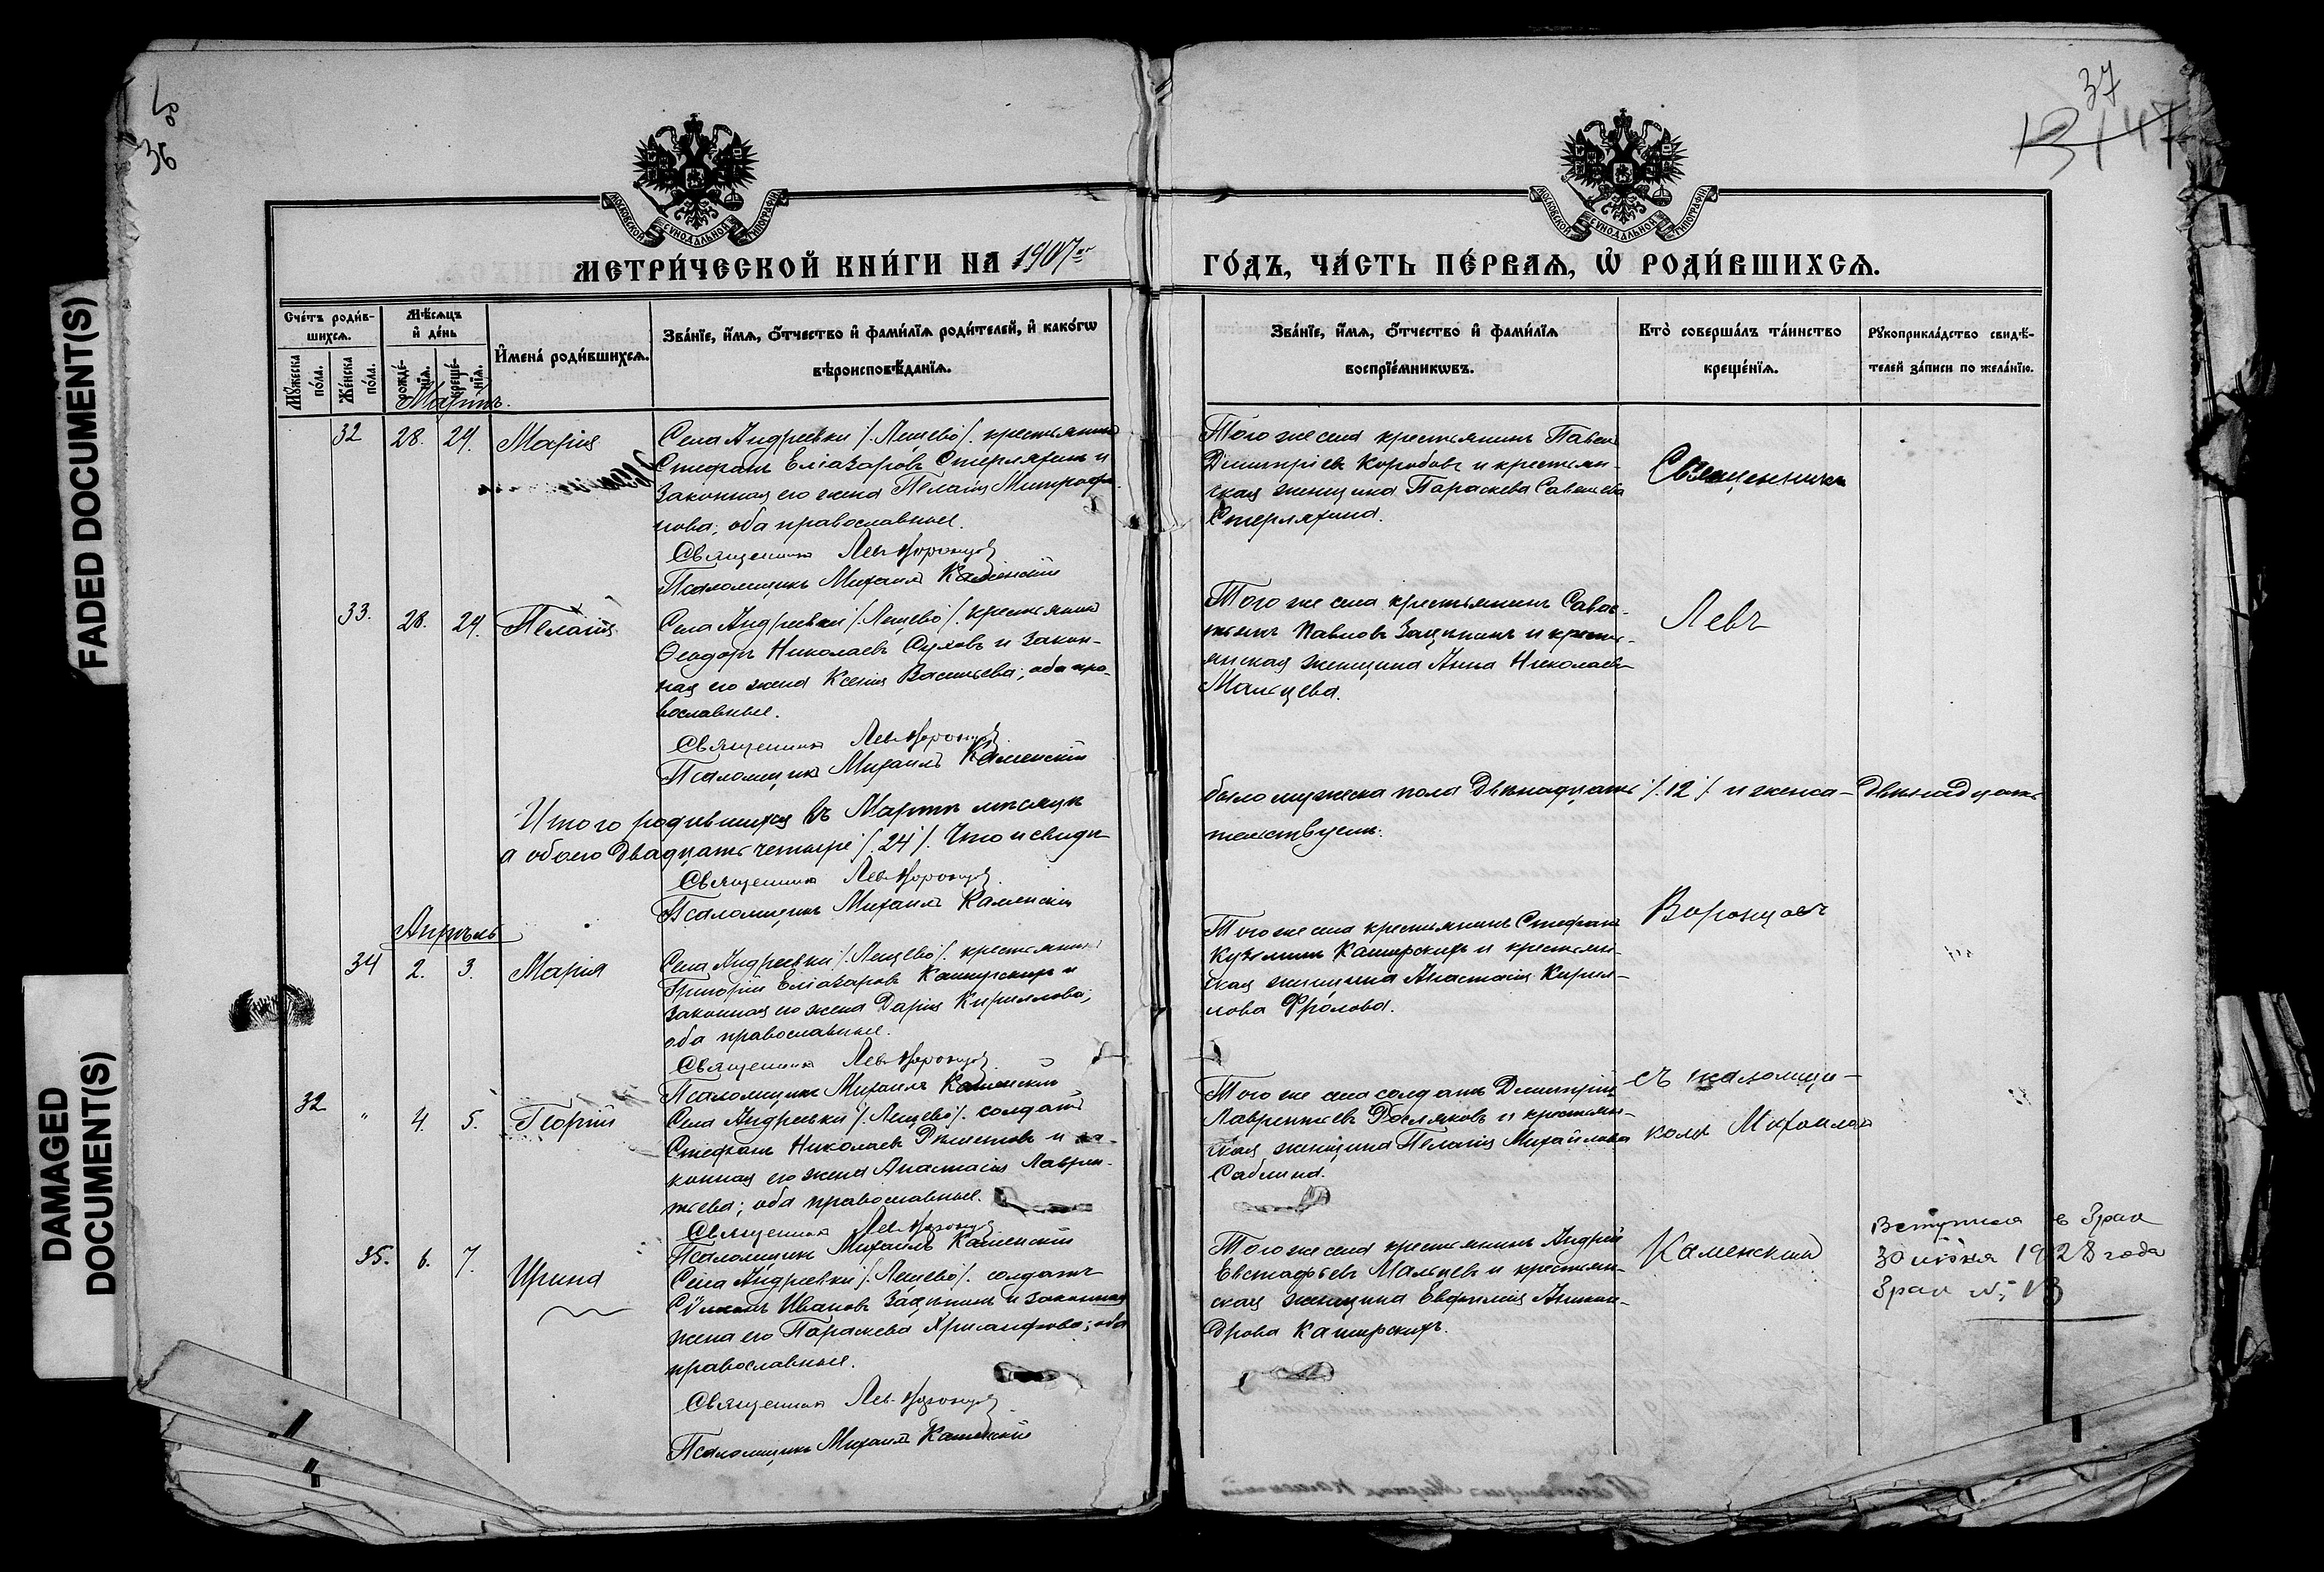 36
37
МОСКОВСКОЙ СѴНОДАЛЬНОЙ ТИПОГРАФІИ
МОСКОВСКОЙ СѴНОДАЛЬНОЙ ТИПОГРАФІИ
FADED DOCUMENT(S)
DAMAGED DOCUMENT(S)
МЕТРИ́ЧЕСКОЙ КНИ́ГИ НА 1907 г.
ГО́ДЪ, ЧА́СТЬ ПЕ́РВАѦ, Ѽ РОДИ́ВШИХСѦ.
Сче́тъ роди́в-
шихсѧ.
Мꙋжеска по́ла.
Же́нска по́ла.
Мѣ́сѧцъ и҆ де́нь
рожде́-нїѧ.
креще́-нїѧ.
И҆мена̀ роди́вшихсѧ.
Зва́нїе, и҆́мѧ, ѻ҆́тчество и҆ фами́лїѧ роди́телей, и҆ како́гѡ
вѣроисповѣ́данїѧ.
Зва́нїе, и҆́мѧ, ѻ҆́тчество и҆ фами́лїѧ
воспрїе́мникѡвъ.
Кто̀ соверша́лъ та́инство
креще́нїѧ.
Рꙋкоприкла́дство свидѣ́-
телей за́писи по жела́нїю.
Мартъ.
32 28. 29. Марія
Села Андреевки /. Лещево /. крестьянинъ
Стефанъ Еліазаровъ Стерляхинъ и
законная его жена Пелагія Митрофа-
нова; оба православные.
Священникъ Левъ Воронцовъ
Псаломщикъ Михаилъ Каменскій
Того же села крестьянинъ Павелъ
Димитріевъ Коробовъ и крестьян-
ская женщина Параскева Савельева
Стерляхина.
Священникъ
33. 28. 29. Пелагія
Села Андреевки /. Лещево /. крестьянинъ
Ѳеодоръ Николаевъ Суховъ и закон-
ная его жена Ксенія Васильева; оба пра-
вославные.
Священникъ Левъ Воронцовъ
Псаломщикъ Михаилъ Каменскій
Того же села крестьянинъ Савас-
тьянъ Павловъ Защипинъ и кресть-
янская женщина Анна Николаева
Мальцева.
Левъ
Итого родившихся въ Мартѣ мѣсяцѣ
было мужеска пола двѣнадцать /. 12 /. и женска – двѣнадцать
а обоего двадцать четыре /. 24 /. Что и свидѣ-
тельствуемъ.
Священникъ Левъ Воронцовъ
Псаломщикъ Михаилъ Каменскій
Апрѣль
34 2. 3. Марія
Села Андреевки /. Лещево /. крестьянинъ
Григорій Еліазаровъ Каширскихъ и
законная его жена Дарія Кириллова;
оба православные.
Священникъ Левъ Воронцовъ
Псаломщикъ Михаилъ Каменскій
Того же села крестьянинъ Стефанъ
Кузьминъ Каширскихъ и крестьян-
ская женщина Анастасія Кирил-
лова Фролова.
Воронцовъ
32 " 4. 5. Георгій
Села Андреевки /. Лещево /. солдатъ
Стефанъ Николаевъ и за-
конная его жена Анастасія Лаврен-
тьева; оба православные.
Священникъ Левъ Воронцовъ
Псаломщикъ Михаилъ Каменскій
Того же села солдатъ Димитрій
Лаврентьевъ и крестьян-
ская женщина Пелагія Михайлова
Саблина.
съ псаломщи-
комъ Михаиломъ
35. 6. 7. Ирина
Села Андреевки /. Лещево /. солдатъ
Иванъ Защипинъ и законная
жена его Параскева Хрисанфова; оба
православные.
Священникъ Левъ Воронцовъ
Псаломщикъ Михаилъ Каменскій
Того же села крестьянинъ Андрей
Евстафьевъ Мальцевъ и крестьян-
ская женщина Евфимія
Каширскихъ.
Каменскимъ
Вступила в брак
30 июня 1928 года